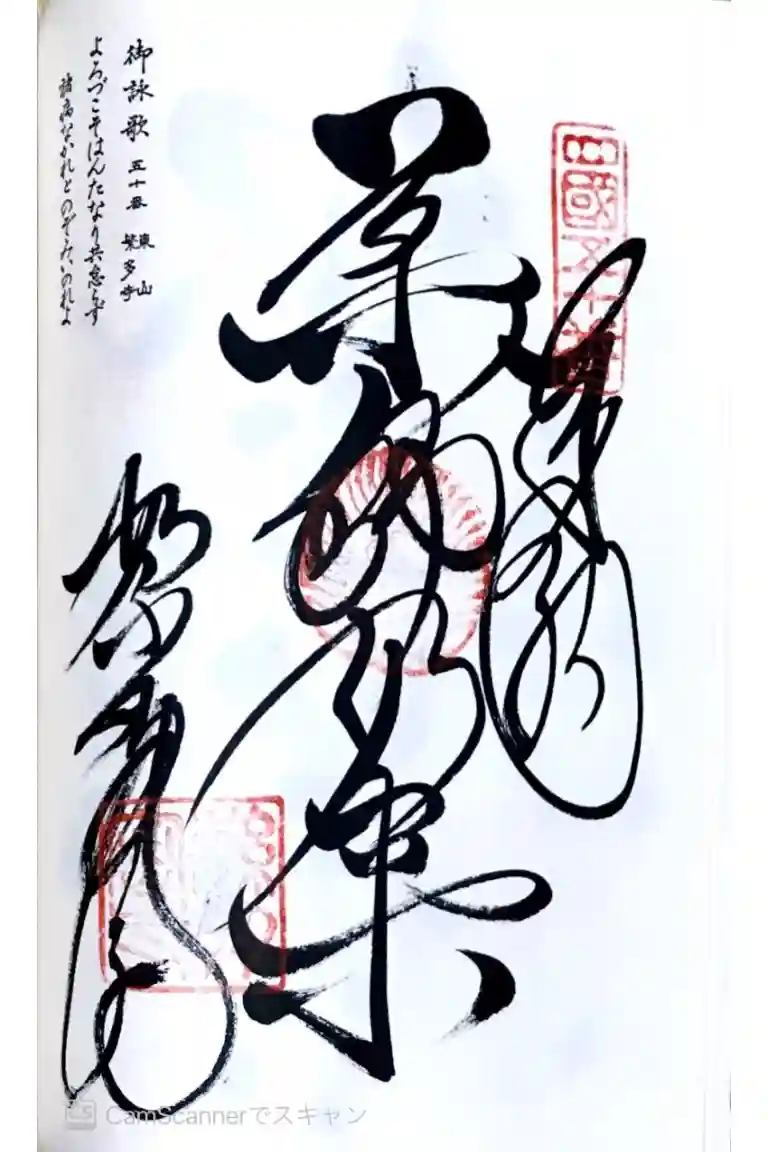 四國五十番
薬師如来
繁多寺
御詠歌 五十番 東山 繁多寺
よろづこそはんたなり共怠らず
諸病なかれとのぞみいのれよ
CamScannerでスキャン